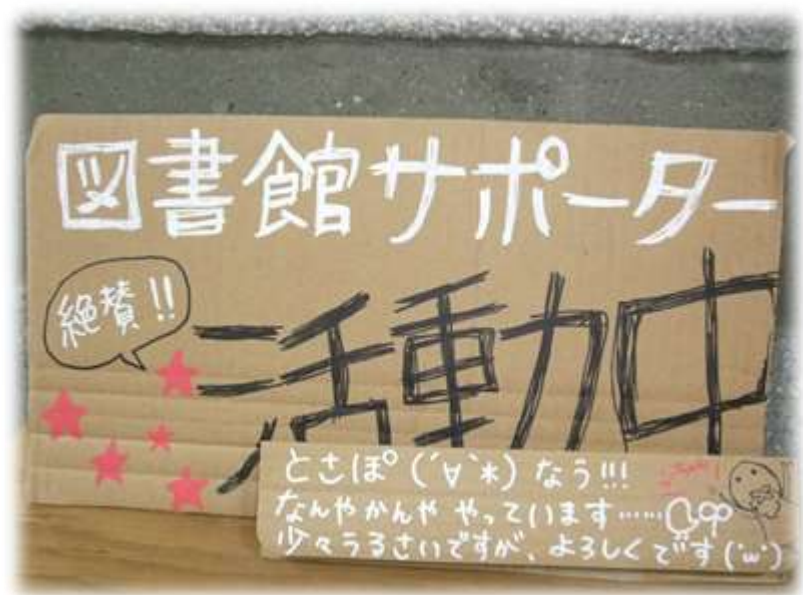 図書館サポーター
絶賛!!
活動中
とさぽ(´∀`*)なう!!!
なんやかんや やっています……
少々うるさいですが、よろしくです(´ω`)